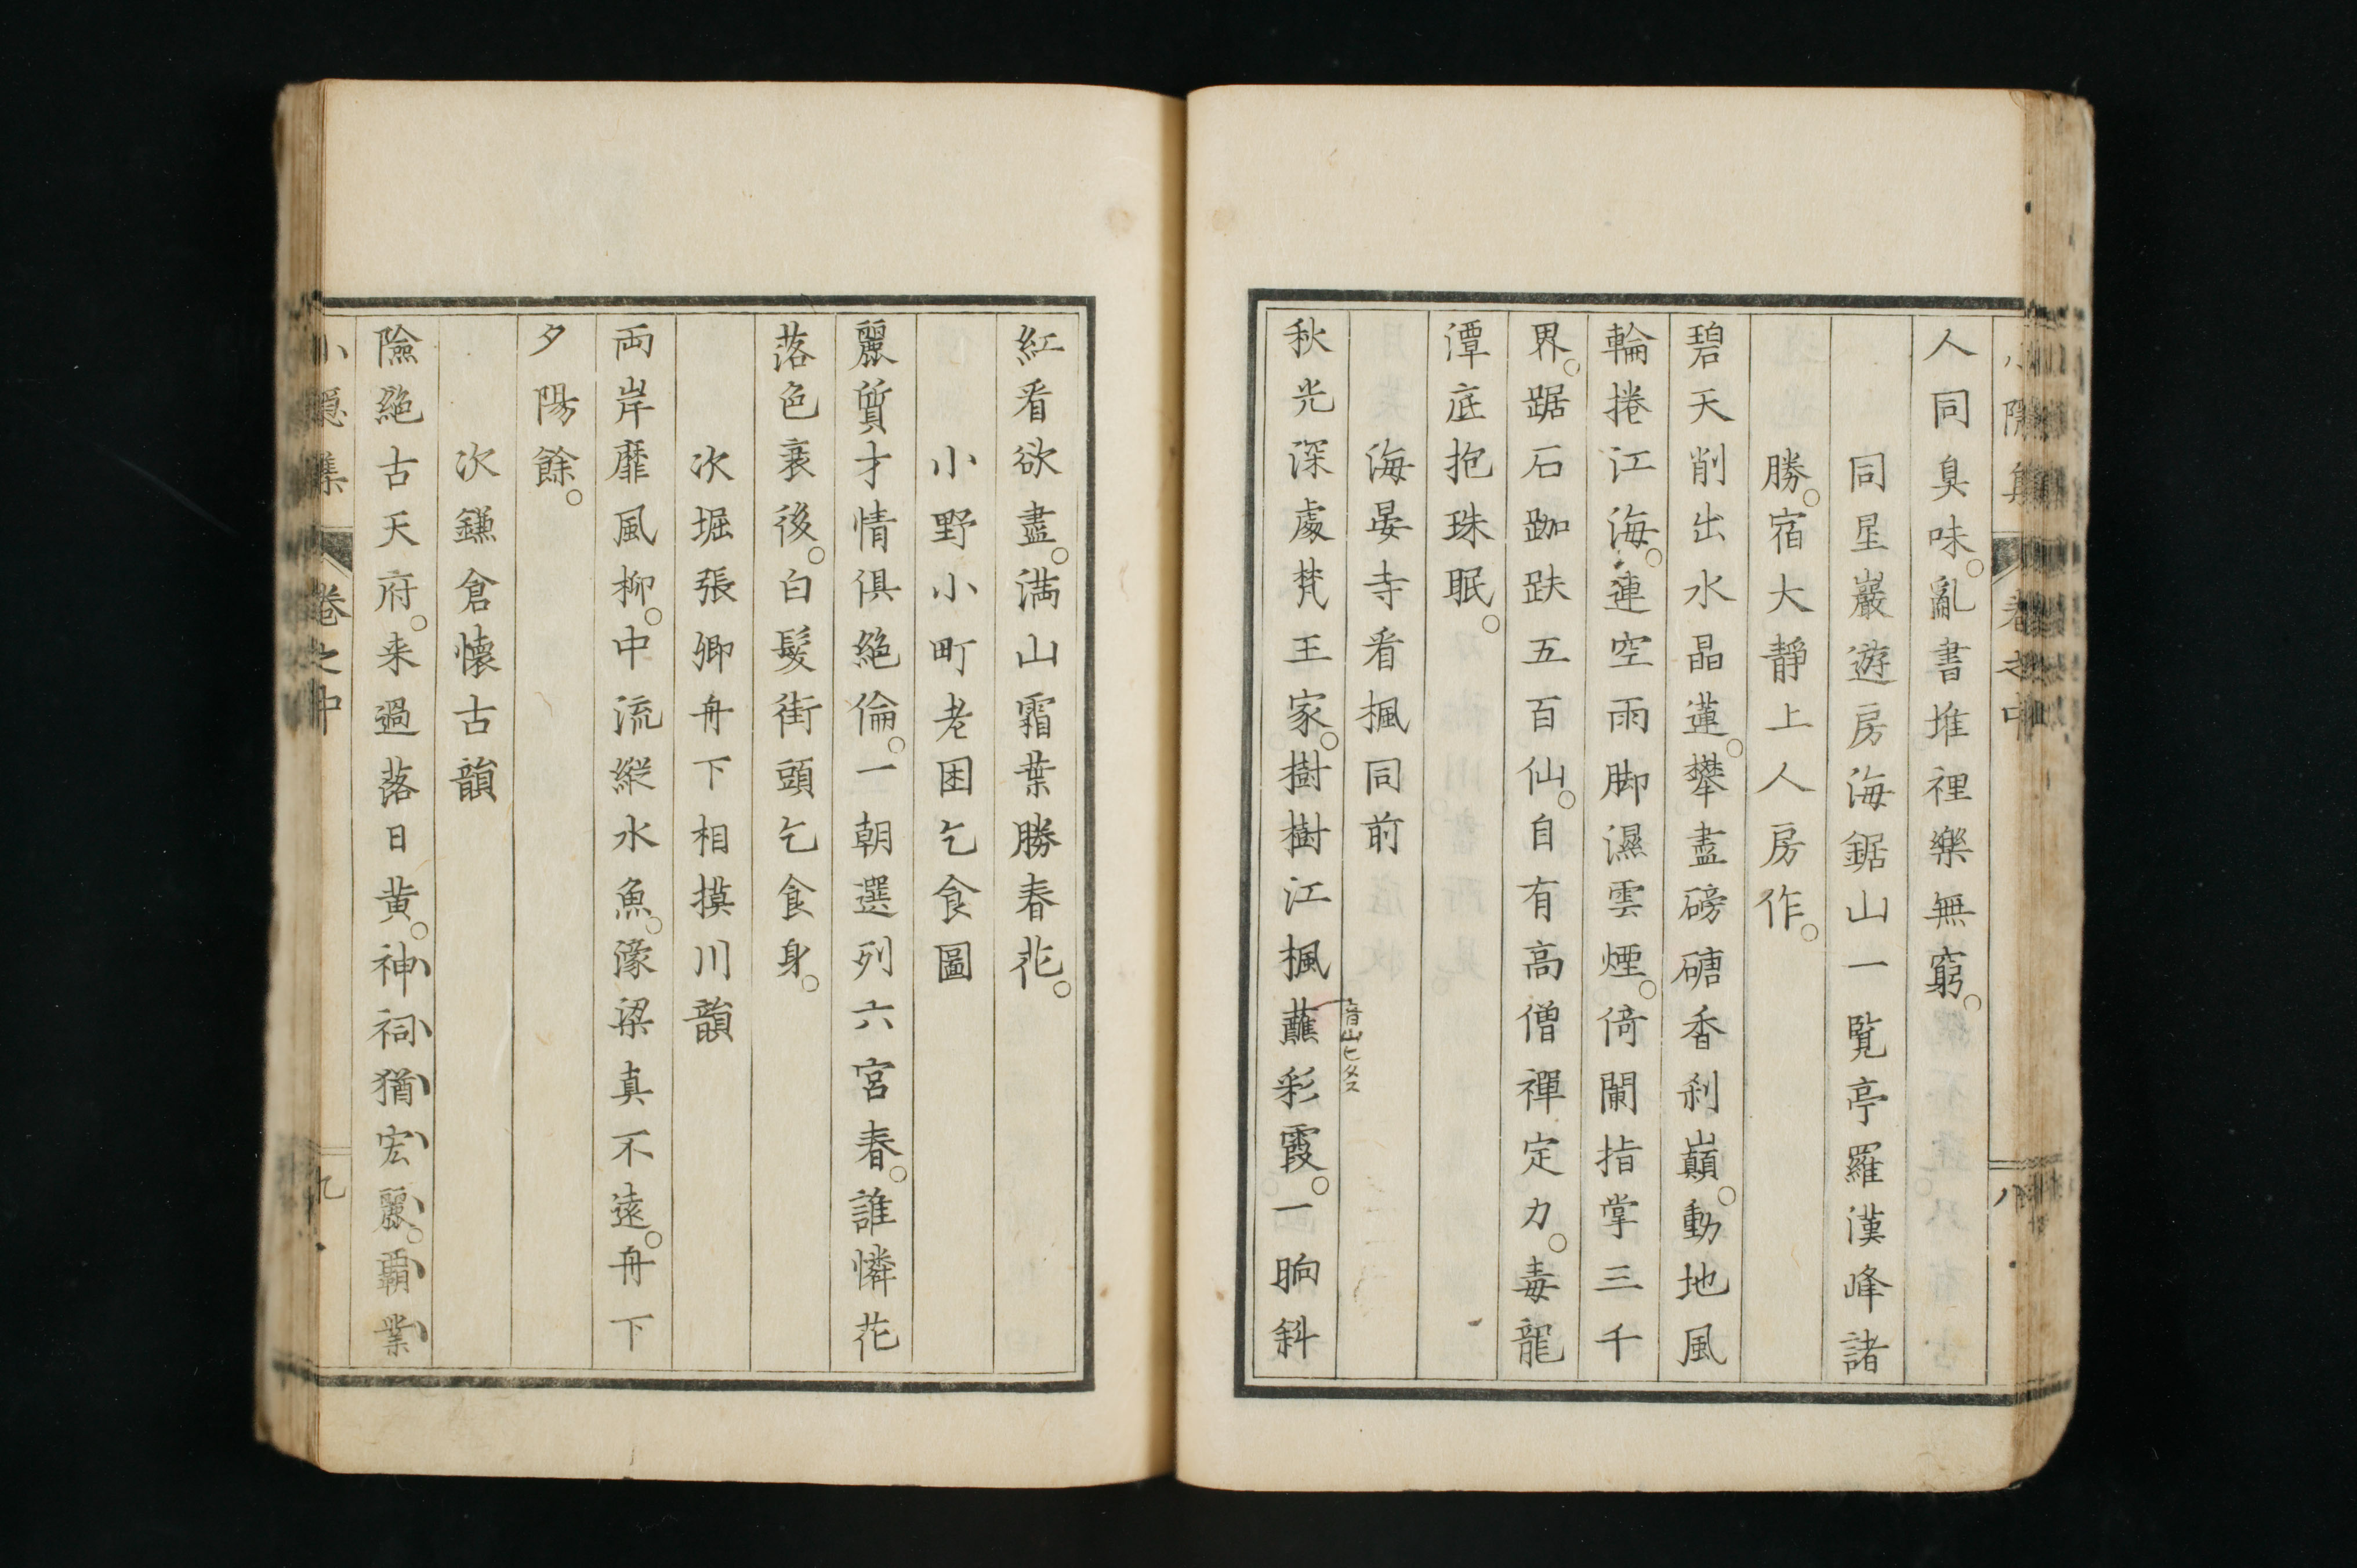 小隱集 卷之中 八
人同臭味。亂書堆裡樂無窮。
同星巖遊房海鋸山一覧亭羅漢峰諸
勝。宿大靜上人房作。
碧天削出水晶蓮。攀盡磅磄香刹巓。動地風
輪捲江海。連空雨脚濕雲煙。倚闌指掌三千
界。踞石跏趺五百仙。自有高僧禪定力。毒龍
潭底抱珠眠。
海晏寺看楓同前
秋光深處梵王家。樹樹江楓蘸彩霞。一晌斜
紅看欲盡。満山霜葉勝春花。
小野小町老困乞食圖
麗質才情俱絶倫。一朝選列六宮春。誰憐花
落色衰後。白髮街頭乞食身。
次堀張卿舟下相摸川韻
両岸靡風柳。中流縱水魚。濠梁真不遠。舟下
夕陽餘。
次鎌倉懷古韻
險絶古天府。来過落日黄。神祠猶宏麗。覇業
小隱集 卷之中 九